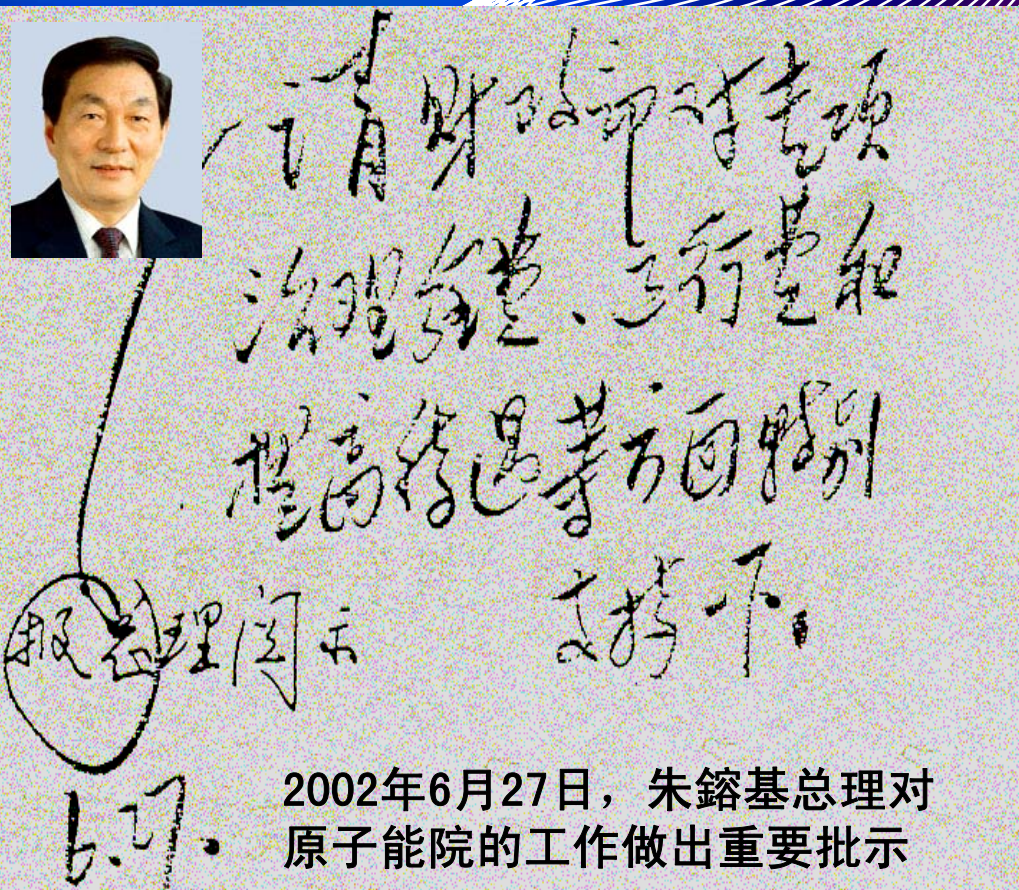 请财政部对专项
治理费、运行费和
提高待遇等方面特别
支持一下。
报总理阅示
6.27.
2002年6月27日，朱鎔基总理对
原子能院的工作做出重要批示